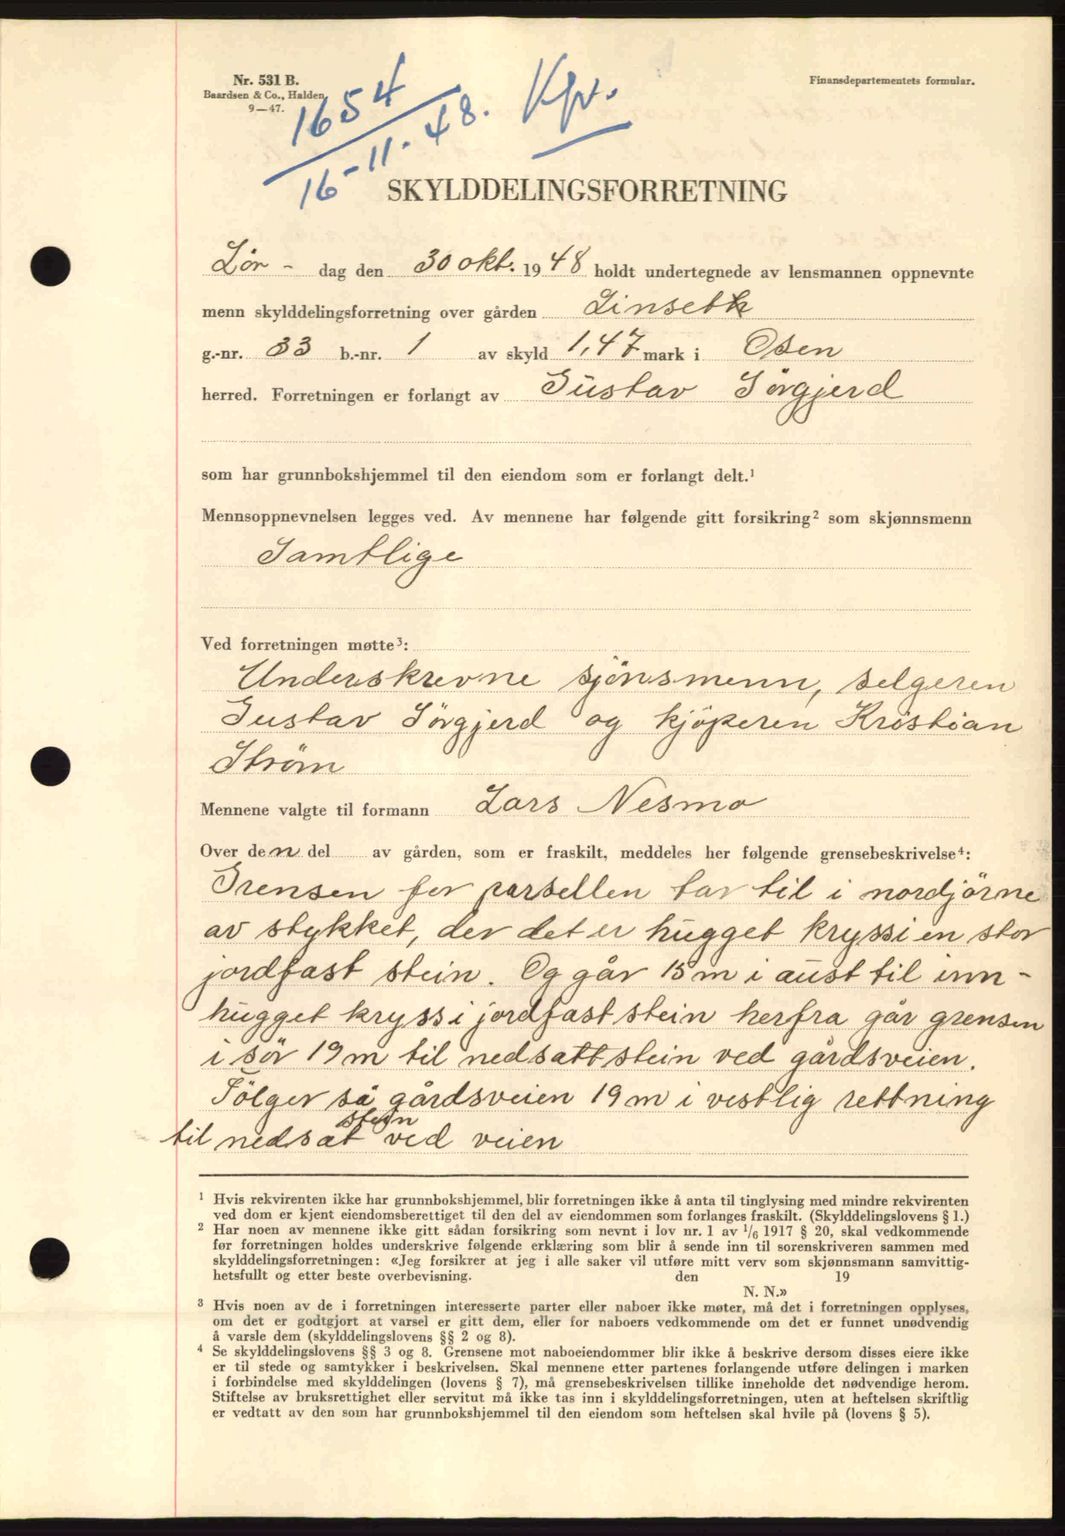 Nr. 531 B.
Baardsen & Co., Halden.
9—47.
Finansdepartementets formular.
1654
16-11-48. Kpr.
SKYLDDELINGSFORRETNING
Lör- dag den 30 okt. 1948 holdt undertegnede av lensmannen oppnevnte
menn skylddelingsforretning over gården Linseth
g.-nr. 33 b.-nr. 1 av skyld 1,47 mark i Osen
herred. Forretningen er forlangt av Gustav Sörgjerd
som har grunnbokshjemmel til den eiendom som er forlangt delt.¹
Mennsoppnevnelsen legges ved. Av mennene har følgende gitt forsikring² som skjønnsmenn
Samtlige
Ved forretningen møtte³:
Underskrevne sjönsmenn, selgeren
Gustav Sörgjerd og kjöperen Kristian
Strøm
Mennene valgte til formann Lars Nesmo
Over den del av gården, som er fraskilt, meddeles her følgende grensebeskrivelse⁴:
Grensen for parsellen tar til i nordjörne
av stykket, der det er hugget kryss i en stor
jordfast stein. Og går 15 m i aust til inn-
hugget kryss i jordfast stein herfra går grensen
i sör 19 m til nedsatt stein ved gårdsveien.
Fölger så gårdsveien 19 m i vestlig rettning
til nedsat stein ved veien
¹ Hvis rekvirenten ikke har grunnbokshjemmel, blir forretningen ikke å anta til tinglysing med mindre rekvirenten
ved dom er kjent eiendomsberettiget til den del av eiendommen som forlanges fraskilt. (Skylddelingslovens § 1.)
² Har noen av mennene ikke gitt sådan forsikring som nevnt i lov nr. 1 av 1/6 1917 § 20, skal vedkommende
før forretningen holdes underskrive følgende erklæring som blir å sende inn til sorenskriveren sammen med
skylddelingsforretningen: «Jeg forsikrer at jeg i alle saker vil utføre mitt verv som skjønnsmann samvittig-
hetsfullt og etter beste overbevisning. den 19
N. N.»
³ Hvis noen av de i forretningen interesserte parter eller naboer ikke møter, må det i forretningen opplyses,
om det er godtgjort at varsel er gitt dem, eller for naboers vedkommende om det er funnet unødvendig
å varsle dem (skylddelingslovens §§ 2 og 8).
⁴ Se skylddelingslovens §§ 3 og 8. Grensene mot naboeiendommer blir ikke å beskrive dersom disses eiere ikke
er til stede og samtykker i beskrivelsen. Skal mennene etter partenes forlangende utføre delingen i marken
i forbindelse med skylddelingen (lovens § 7), må grensebeskrivelsen tillike inneholde det nødvendige herom.
Stiftelse av bruksrettighet eller servitut må ikke tas inn i skylddelingsforretningen, uten at heftelsen skriftlig
er vedtatt av den som har grunnbokshjemmel til den eiendom som heftelsen skal hvile på (lovens § 5).